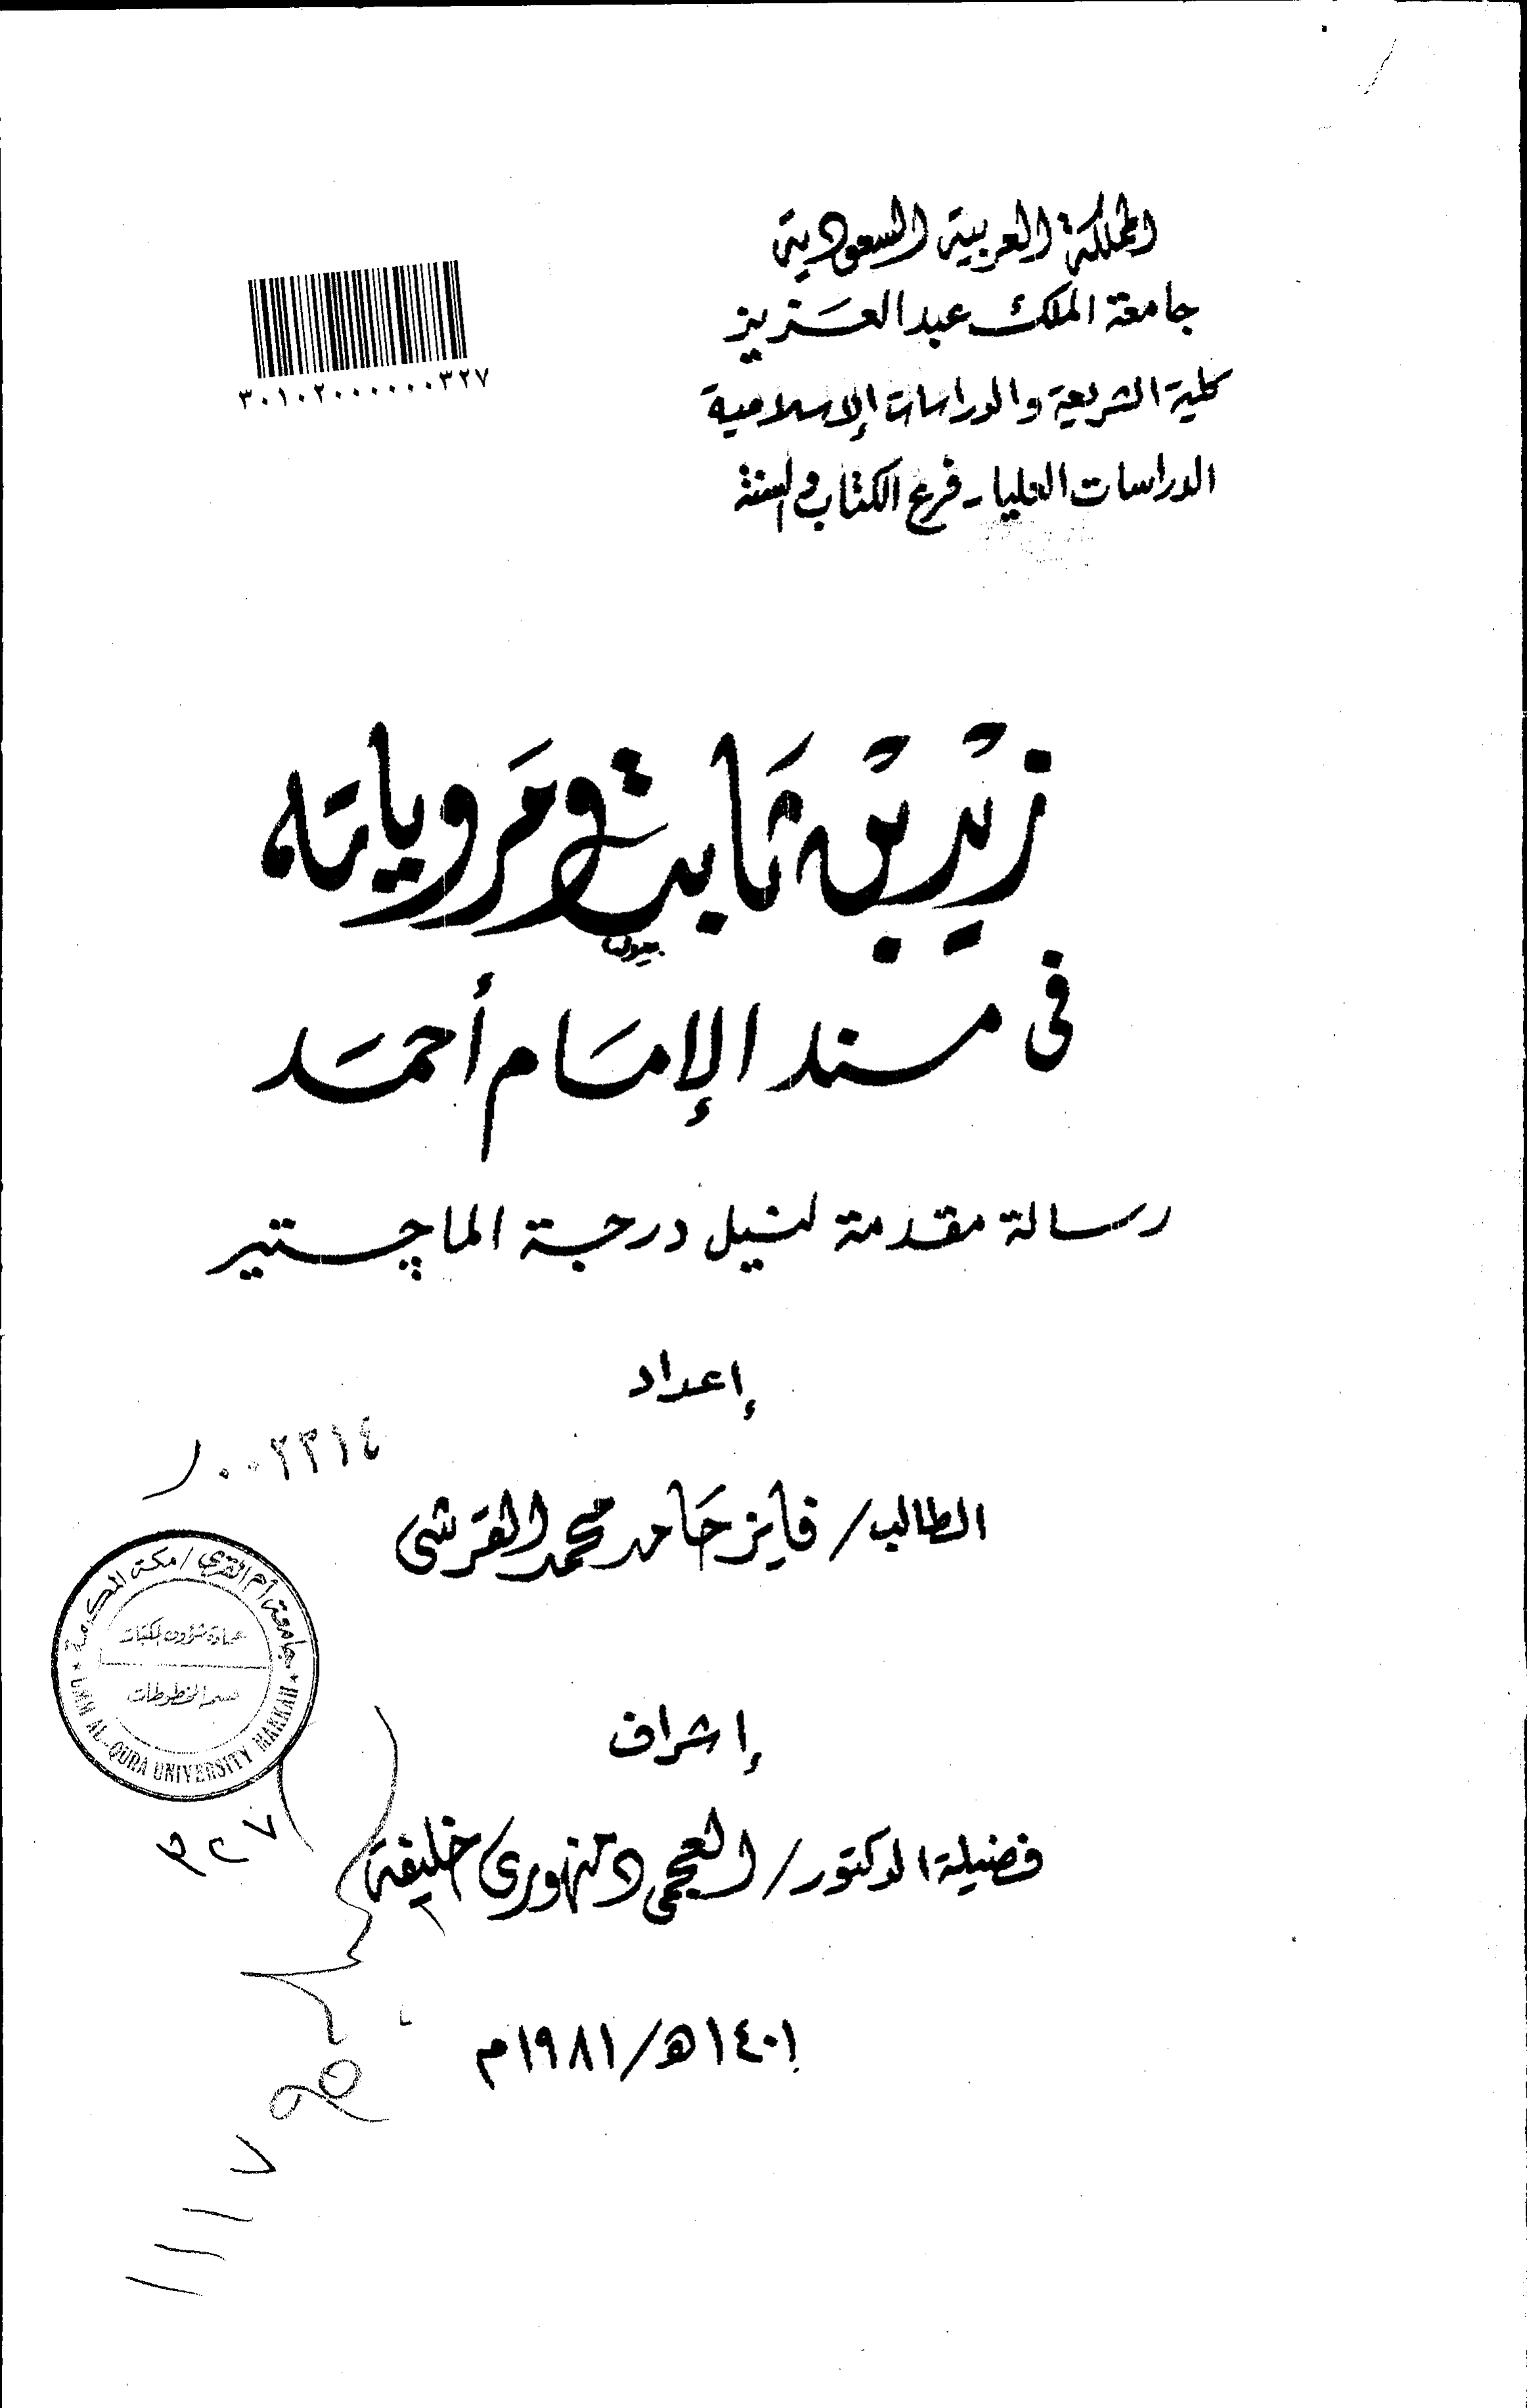 المملكة العربية السعودية
جامعة الملك عبد العزيز
كلية الشريعة والدراسات الإسلامية
الدراسات العليا - فرع الكتاب والسنة
٣٠١٠٢٠٠٠٠٠٠٣٢٧
زيد بن ثابت ومروياته
فى مسند الإمام أحمد
رسالة مقدمة لنيل درجة الماجستير
إعداد
٠٠٢٣١٤
الطالب / فايز حامد محمد القرشى
جامعة أم القرى / مكة المكرمة
عمادة شؤون المكتبات
قسم المخطوطات
UMM AL-QURA UNIVERSITY MAKKAH
إشراف
٣٢٧
فضيلة الدكتور / العجمى دمنهورى خليفة
١٤٠١هـ / ١٩٨١م